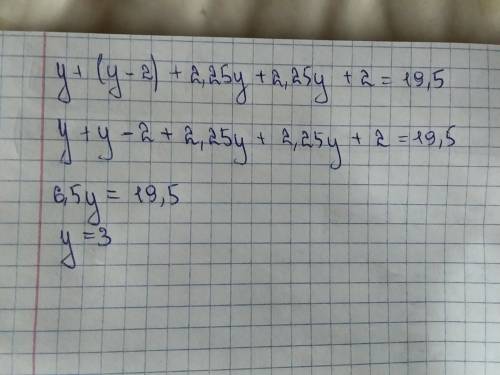 y + (y - 2) + 2,25y + 2,25y + 2 = 19,5
y + y - 2 + 2,25y + 2,25y + 2 = 19,5
6,5y = 19,5
y = 3